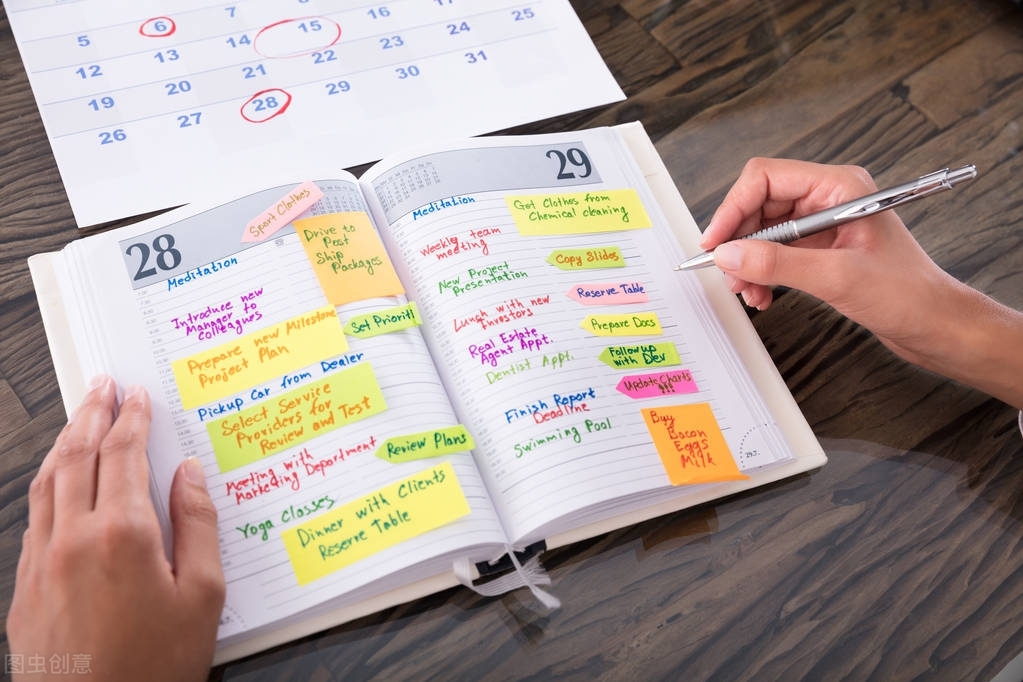 17
24
31
16
23
30
8
15
22
29
7
14
21
28
6
13
20
27
5
12
19
26
25
28
Sport Clothes
Meditation
Drive to
Post
Ship
Packages
Introduce new
Manager to
colleagues
Set Prioriti
Prepare new Milestone
Project Plan
Pickup Car from Dealer
Select Service
Providers for
Review and Test
Review Plans
Meeting with
Marketing Department
Yoga Classes
Dinner with Clients
Reserve Table
29
Meditation
Get Clothes from
Chemical cleaning
Weekly team
meeting
Copy Slides
New Project
Presentation
Reserve Table
Lunch with new
Investors
Prepare Docs
Real Estate
Agent Appt.
Followup
with Dev
Dentist Appt.
Update Charts
!!!
Finish Report
Deadline
Buy
Bacon
Eggs
Milk
Swimming Pool
图虫创意